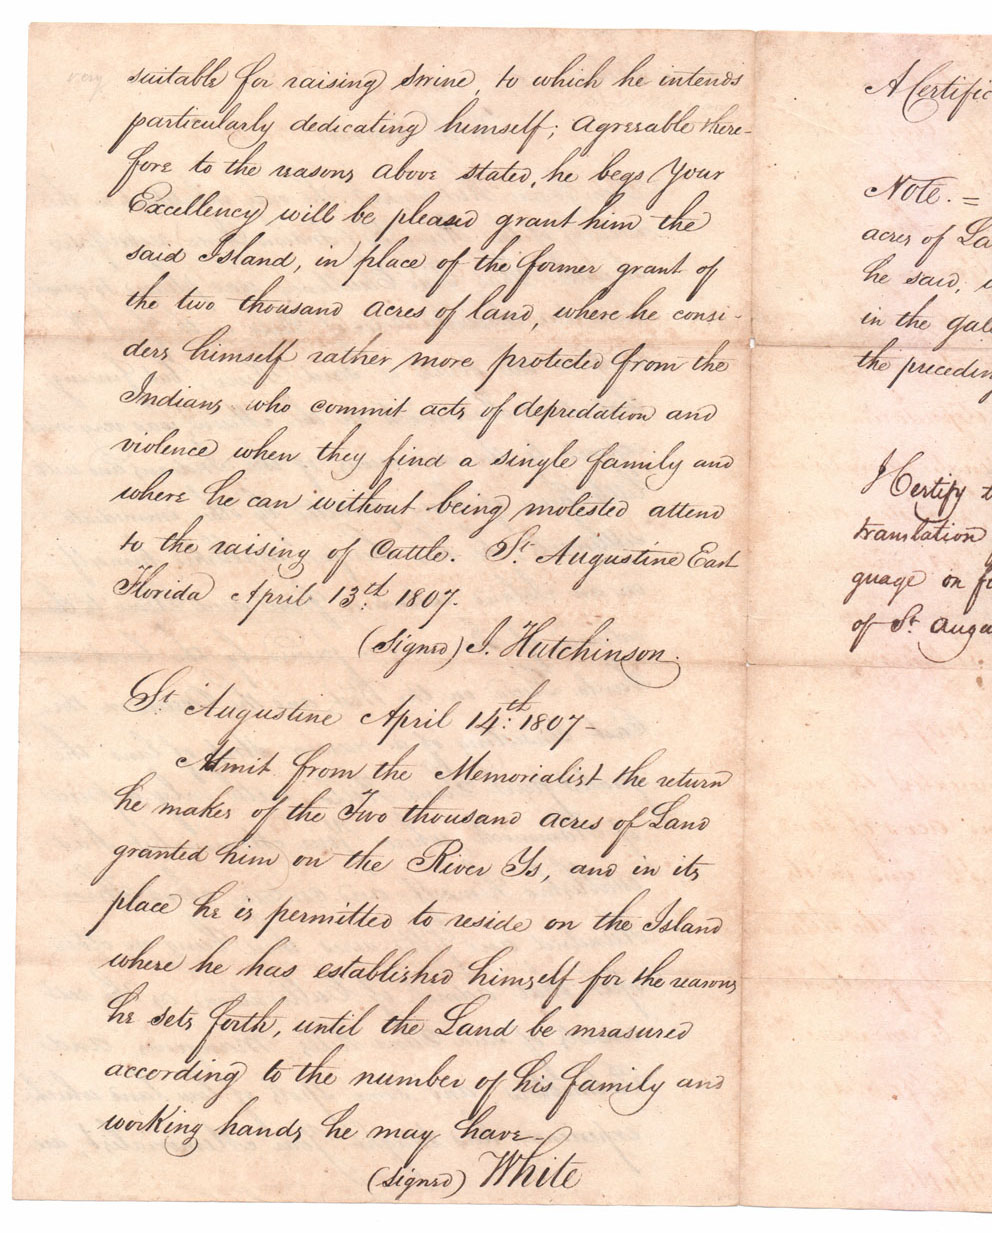 suitable for raising Swine, to which he intends
particularly dedicating himself; agreeable there-
fore to the reasons above stated, he begs Your
Excellency will be pleased grant him the
said Island, in place of the former grant of
the two thousand acres of land, where he consi-
ders himself rather more protected from the
Indians who commit acts of depredation and
violence when they find a single family and
where he can without being molested attend
to the raising of Cattle. St. Augustine East
Florida April 13th. 1807.
(Signed) J. Hutchinson.
St. Augustine April 14th: 1807-
Admit from the Memorialist the return
he makes of the Two thousand acres of Land
granted him on the River Ys, and in its
place he is permitted to reside on the Island
where he has established himself for the reasons
he sets forth, until the Land be measured
according to the number of his family and
working hands he may have-
(signed) White
A Certific
Note. =
acres of La
he said,
in the gal
the preceden
I Certify t
translation
guage on f
of St. Augu